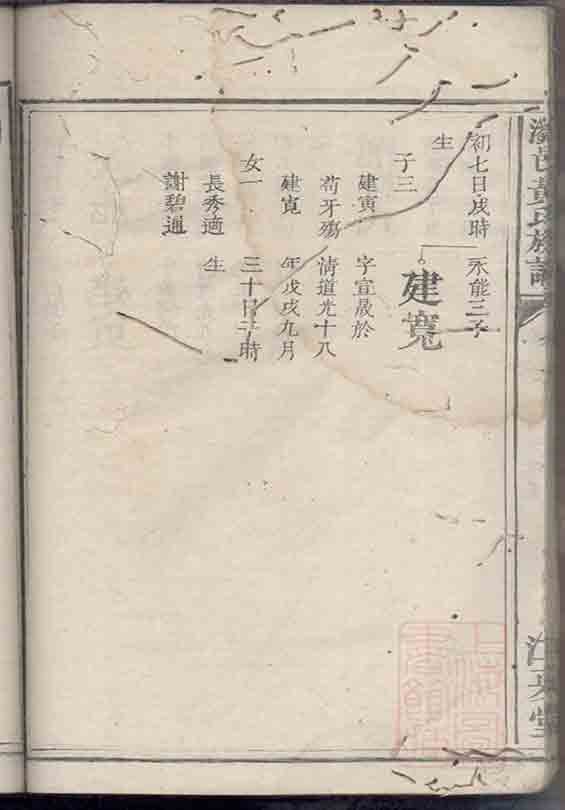 瀏邑黄氏族譜
江夏堂
初七日戌時
生
子三
建寅
苟牙殤
建寬
女一
長秀適
謝碧通
永能三子
建寬
字宣晟於
清道光十八
年戊戌九月
三十日時
生